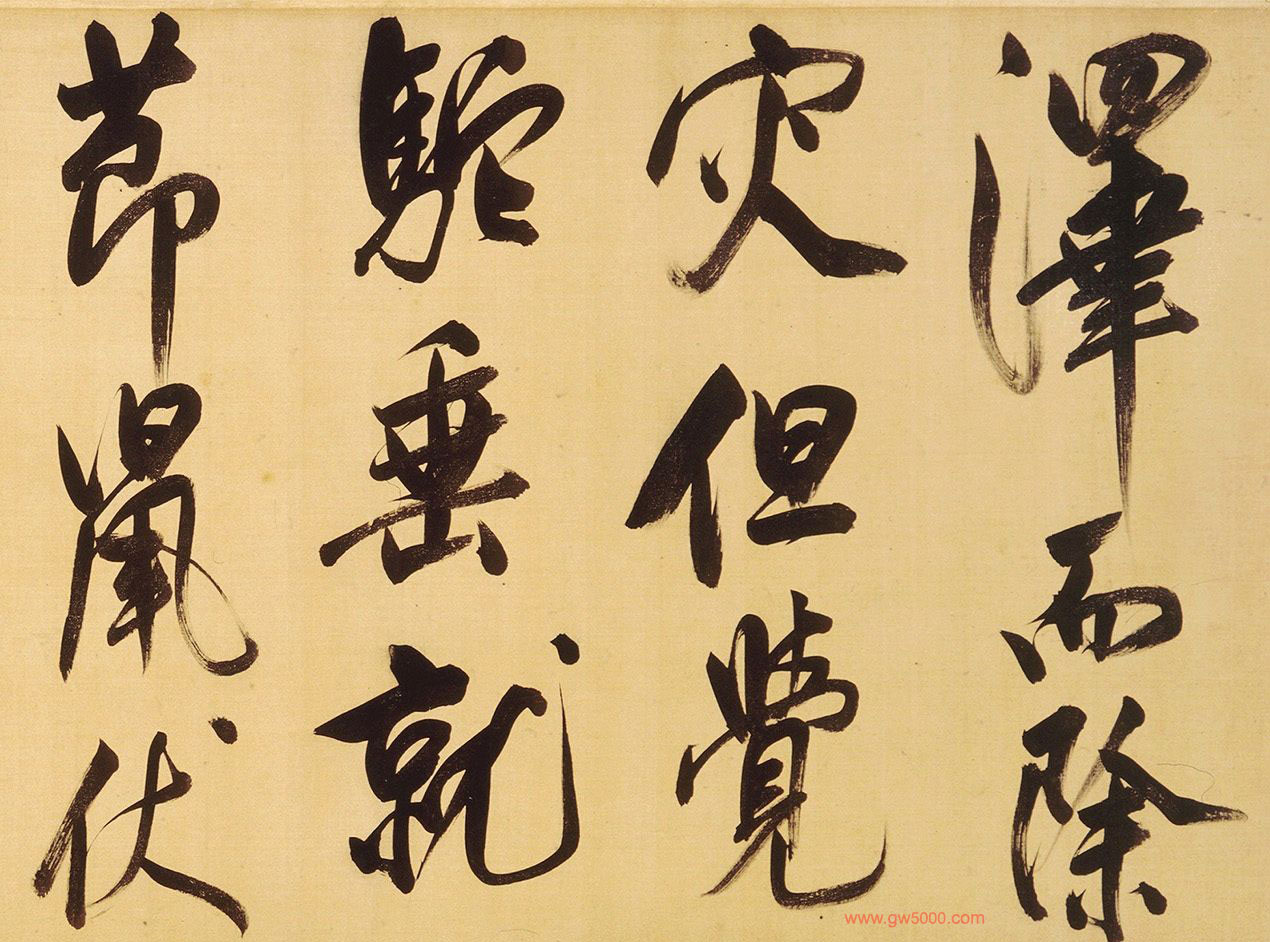 澤而除
灾但覺
駝垂就
莭鼠伏
www.gw5000.com